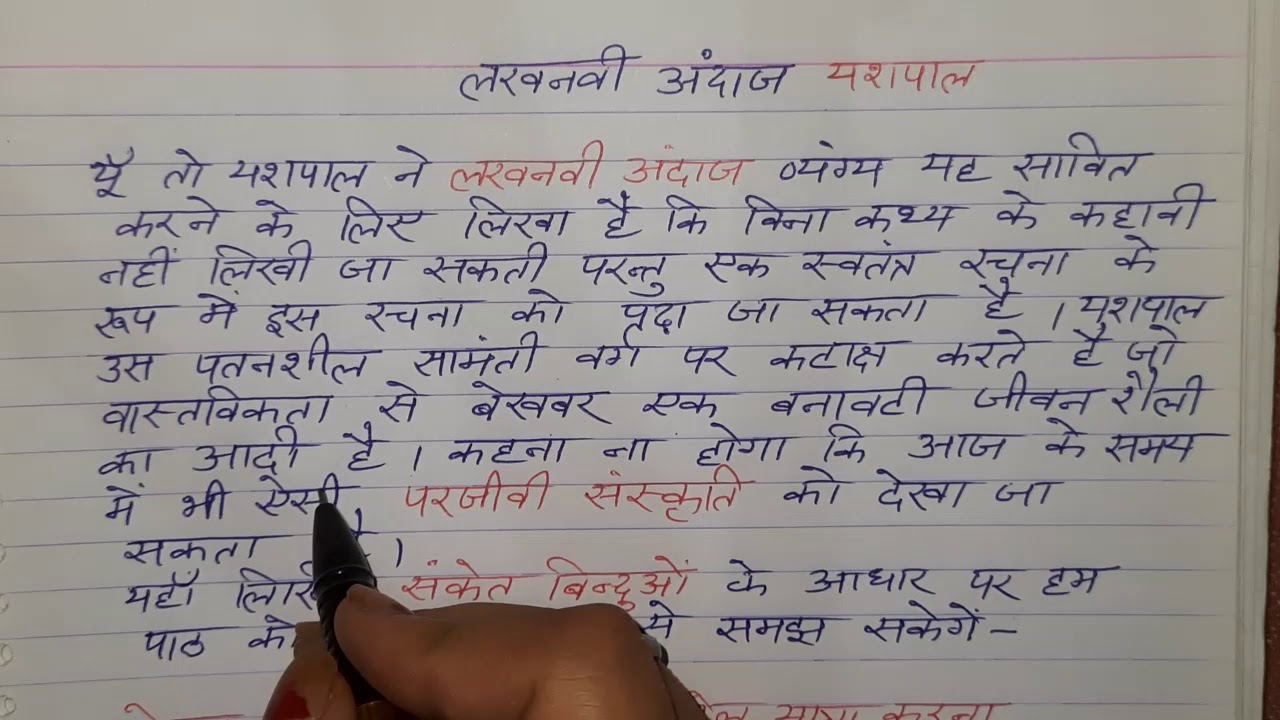 लखनवी अंदाज यशपाल
यूँ तो यशपाल ने लखनवी अंदाज व्यंग्य यह सावित
करने के लिए लिखा है कि विना कथ्य के कहानी
नहीं लिखी जा सकती परन्तु एक स्वतंत्र रचना के
रूप में इस रचना को पढ़ा जा सकता है । यशपाल
उस पतनशील सामंती वर्ग पर कटाक्ष करते है जो
वास्तविकता से बेखबर एक बनावटी जीवन शैली
का आदी है । कहना ना होगा कि आज के समय
में भी ऐसी परजीवी संस्कृति को देखा जा
सकता है ।
यहाँ संकेत बिन्दुओं के आधार पर हम
पाठ को समझ सकेगें –
करना